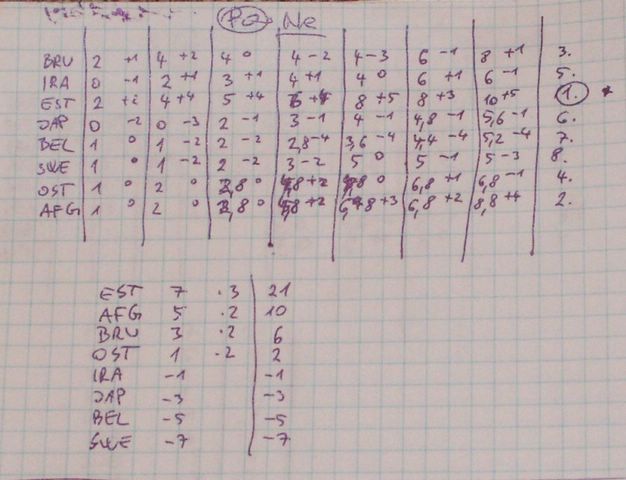 Po Ne
BRU 2 +1 4 +2 4 0 4 -2 4 -3 6 -1 8 +1 3.
IRA 0 -1 2 +1 3 +1 4 +1 4 0 6 +1 6 -1 5.
EST 2 +2 4 +4 5 +4 8 +5 8 +3 10 +5 1.
JAP 0 -2 0 -3 2 -1 3 -1 4 -1 4,8 -1 5,6 -1 6.
BEL 1 0 1 -2 2 -2 2,8 -4 3,6 -4 4,4 -4 5,2 -4 7.
SWE 1 0 1 -2 2 -2 3 -2 5 0 5 -1 5 -3 8.
OST 1 0 2 0 2,8 0 +2 0 6,8 +1 6,8 -1 4.
AFG 1 0 2 0 2,8 0 +2 +3 6,8 +2 8,8 +4 2.
EST 7 .3 21
AFG 5 .2 10
BRU 3 .2 6
OST 1 .2 2
IRA -1 -1
JAP -3 -3
BEL -5 -5
SWE -7 -7